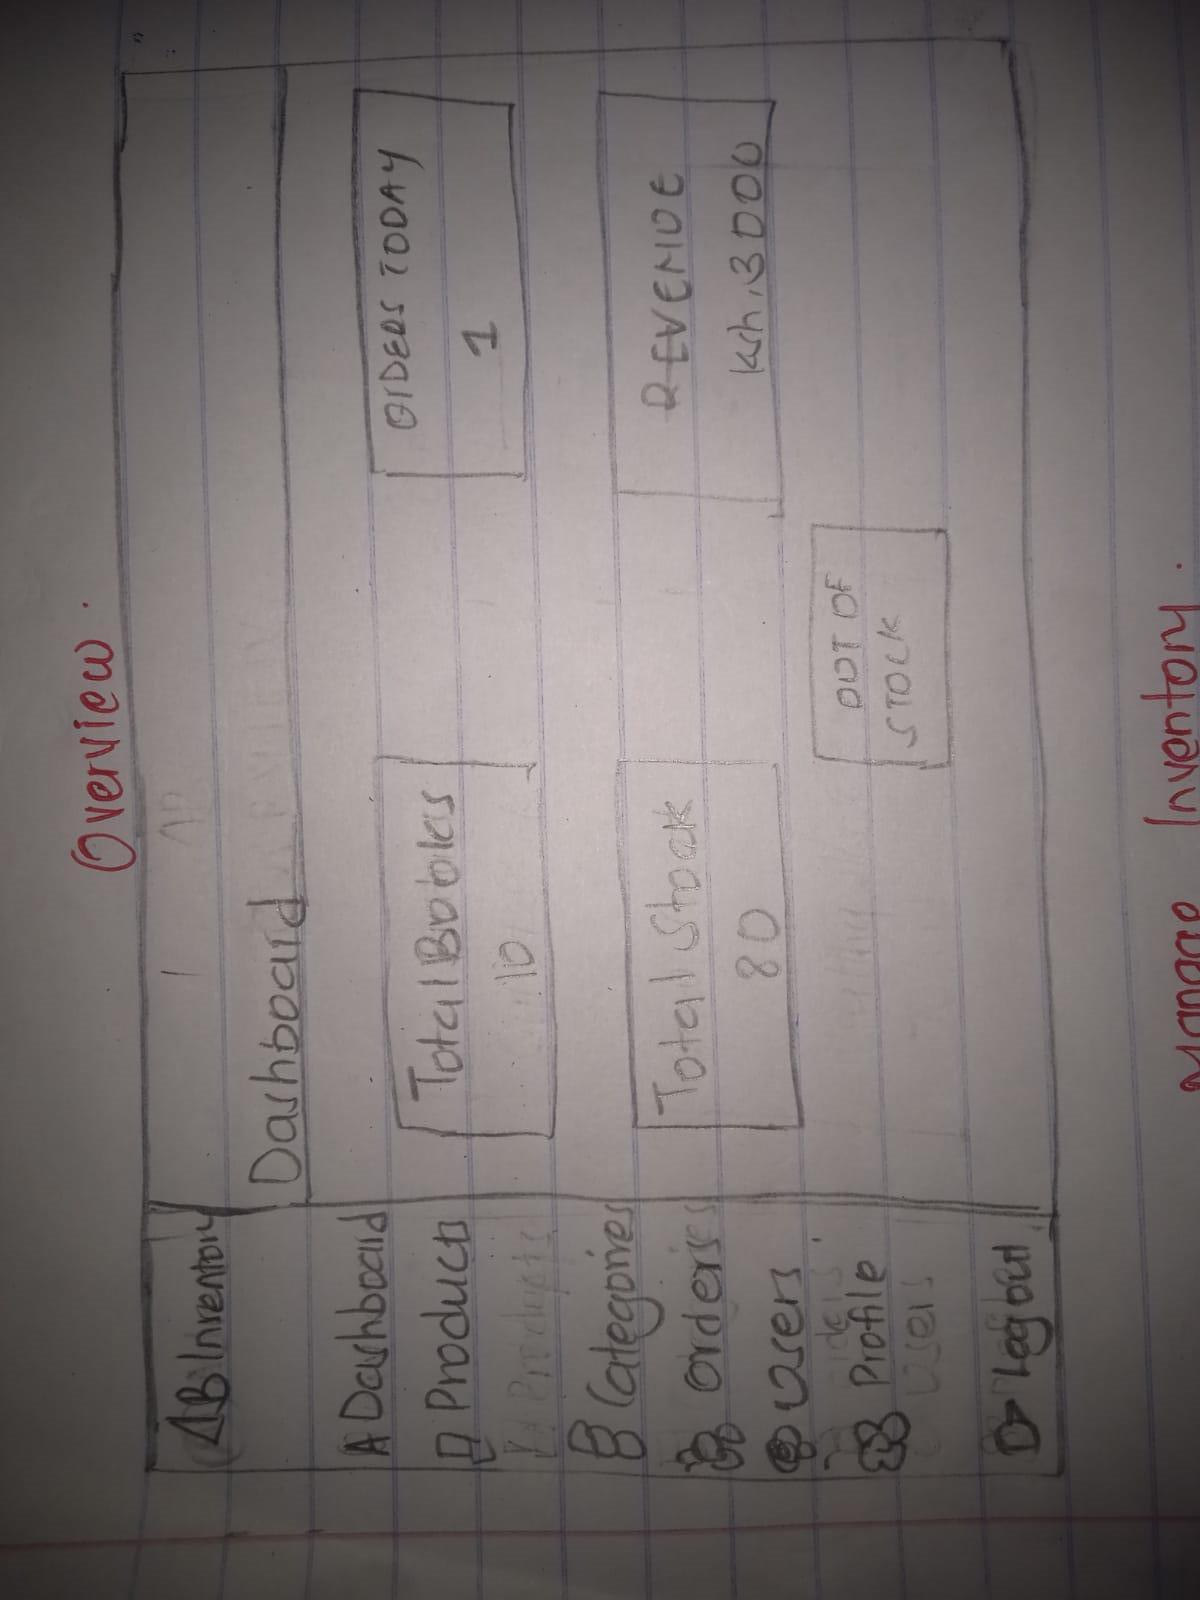 Overview.
AB Inventory
Dashboard
Dashboard
Products
Categories
orders
users
Profile
Logout
Total Bobbles
10
ORDERS TODAY
1
Total Stock
80
REVENUE
Ksh.3000
OUT OF
STOCK
Inventory.